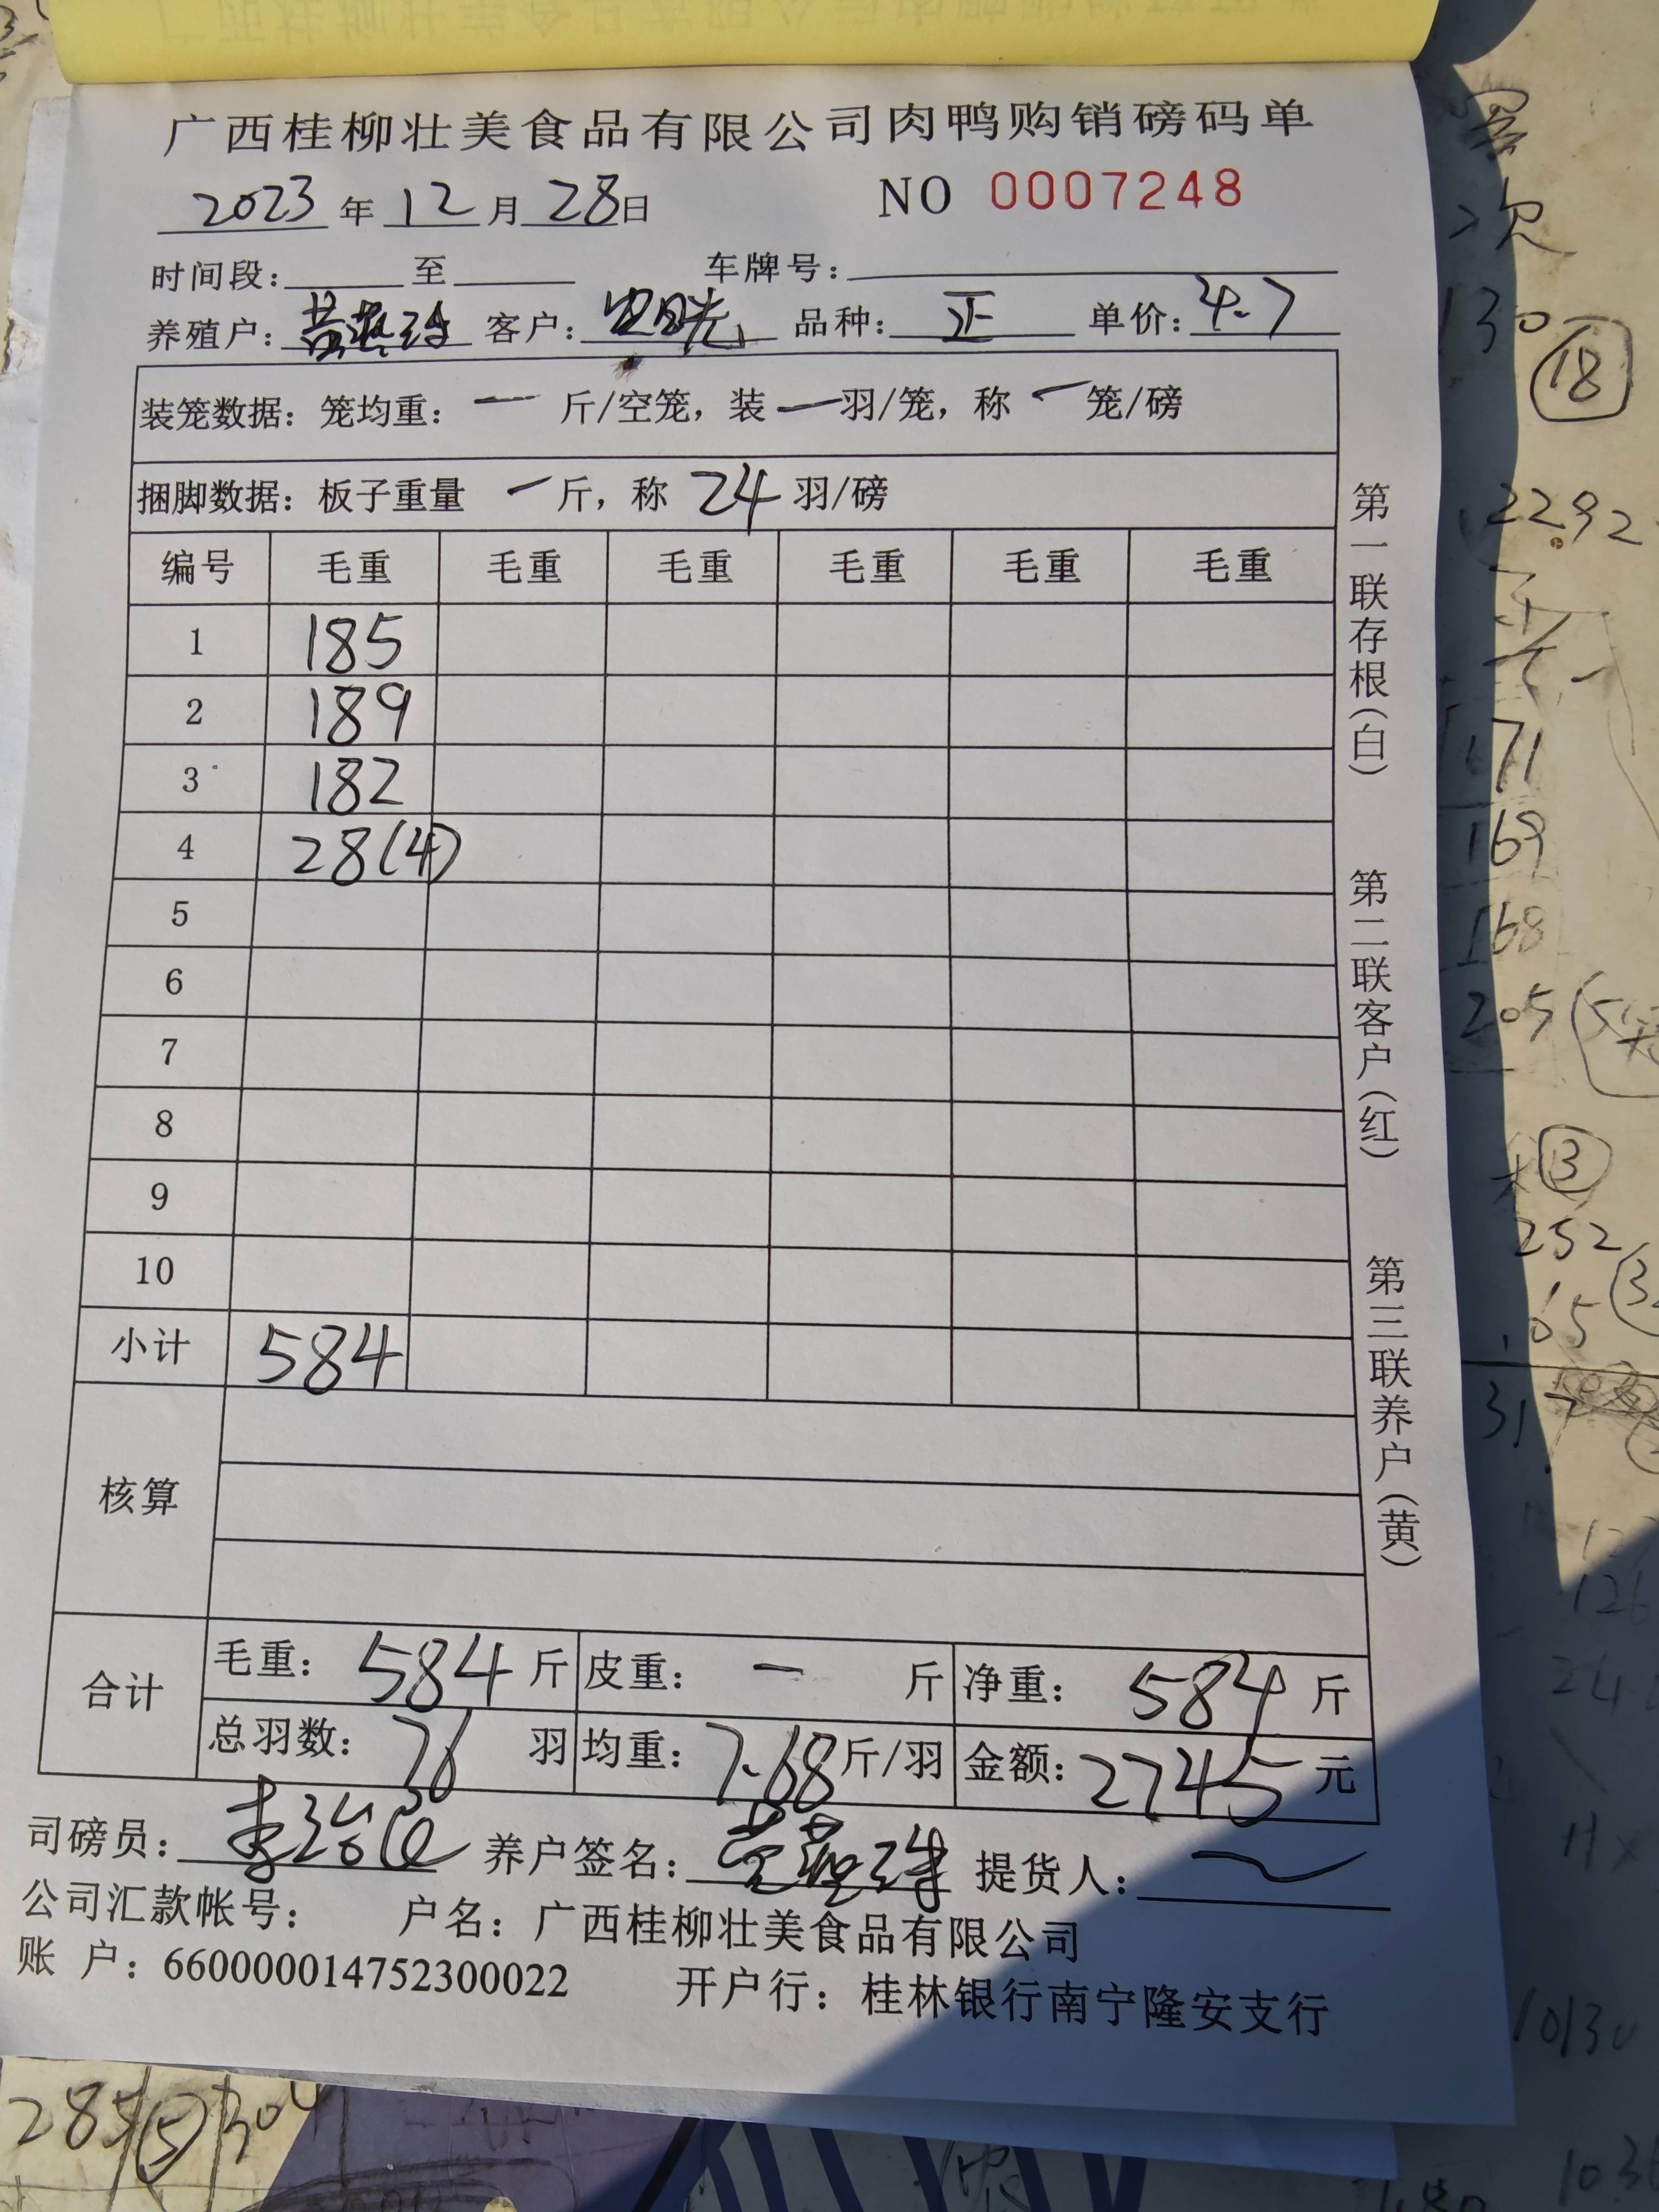 广西桂柳壮美食品有限公司肉鸭购销磅码单
2023年12月28日 NO 0007248
时间段: 至 车牌号:
养殖户: 客户: 品种: 正 单价: 4.7
装笼数据: 笼均重: 一 斤/空笼, 装 一 羽/笼, 称 一 笼/磅
捆脚数据: 板子重量 一 斤, 称 24 羽/磅
编号 毛重 毛重 毛重 毛重 毛重 毛重
1 185
2 189
3 182
4 28(4)
5
6
7
8
9
10
小计 584
核算
合计 毛重: 584 斤 皮重: 一 斤 净重: 584 斤
总羽数: 76 羽 均重: 7.68 斤/羽 金额: 2745 元
司磅员: 养户签名: 提货人:
公司汇款帐号: 户名: 广西桂柳壮美食品有限公司
账 户: 660000014752300022 开户行: 桂林银行南宁隆安支行
第一联存根(白) 第二联客户(红) 第三联养户(黄)
130
18
2292
171
169
168
205
3
252
65
317
285